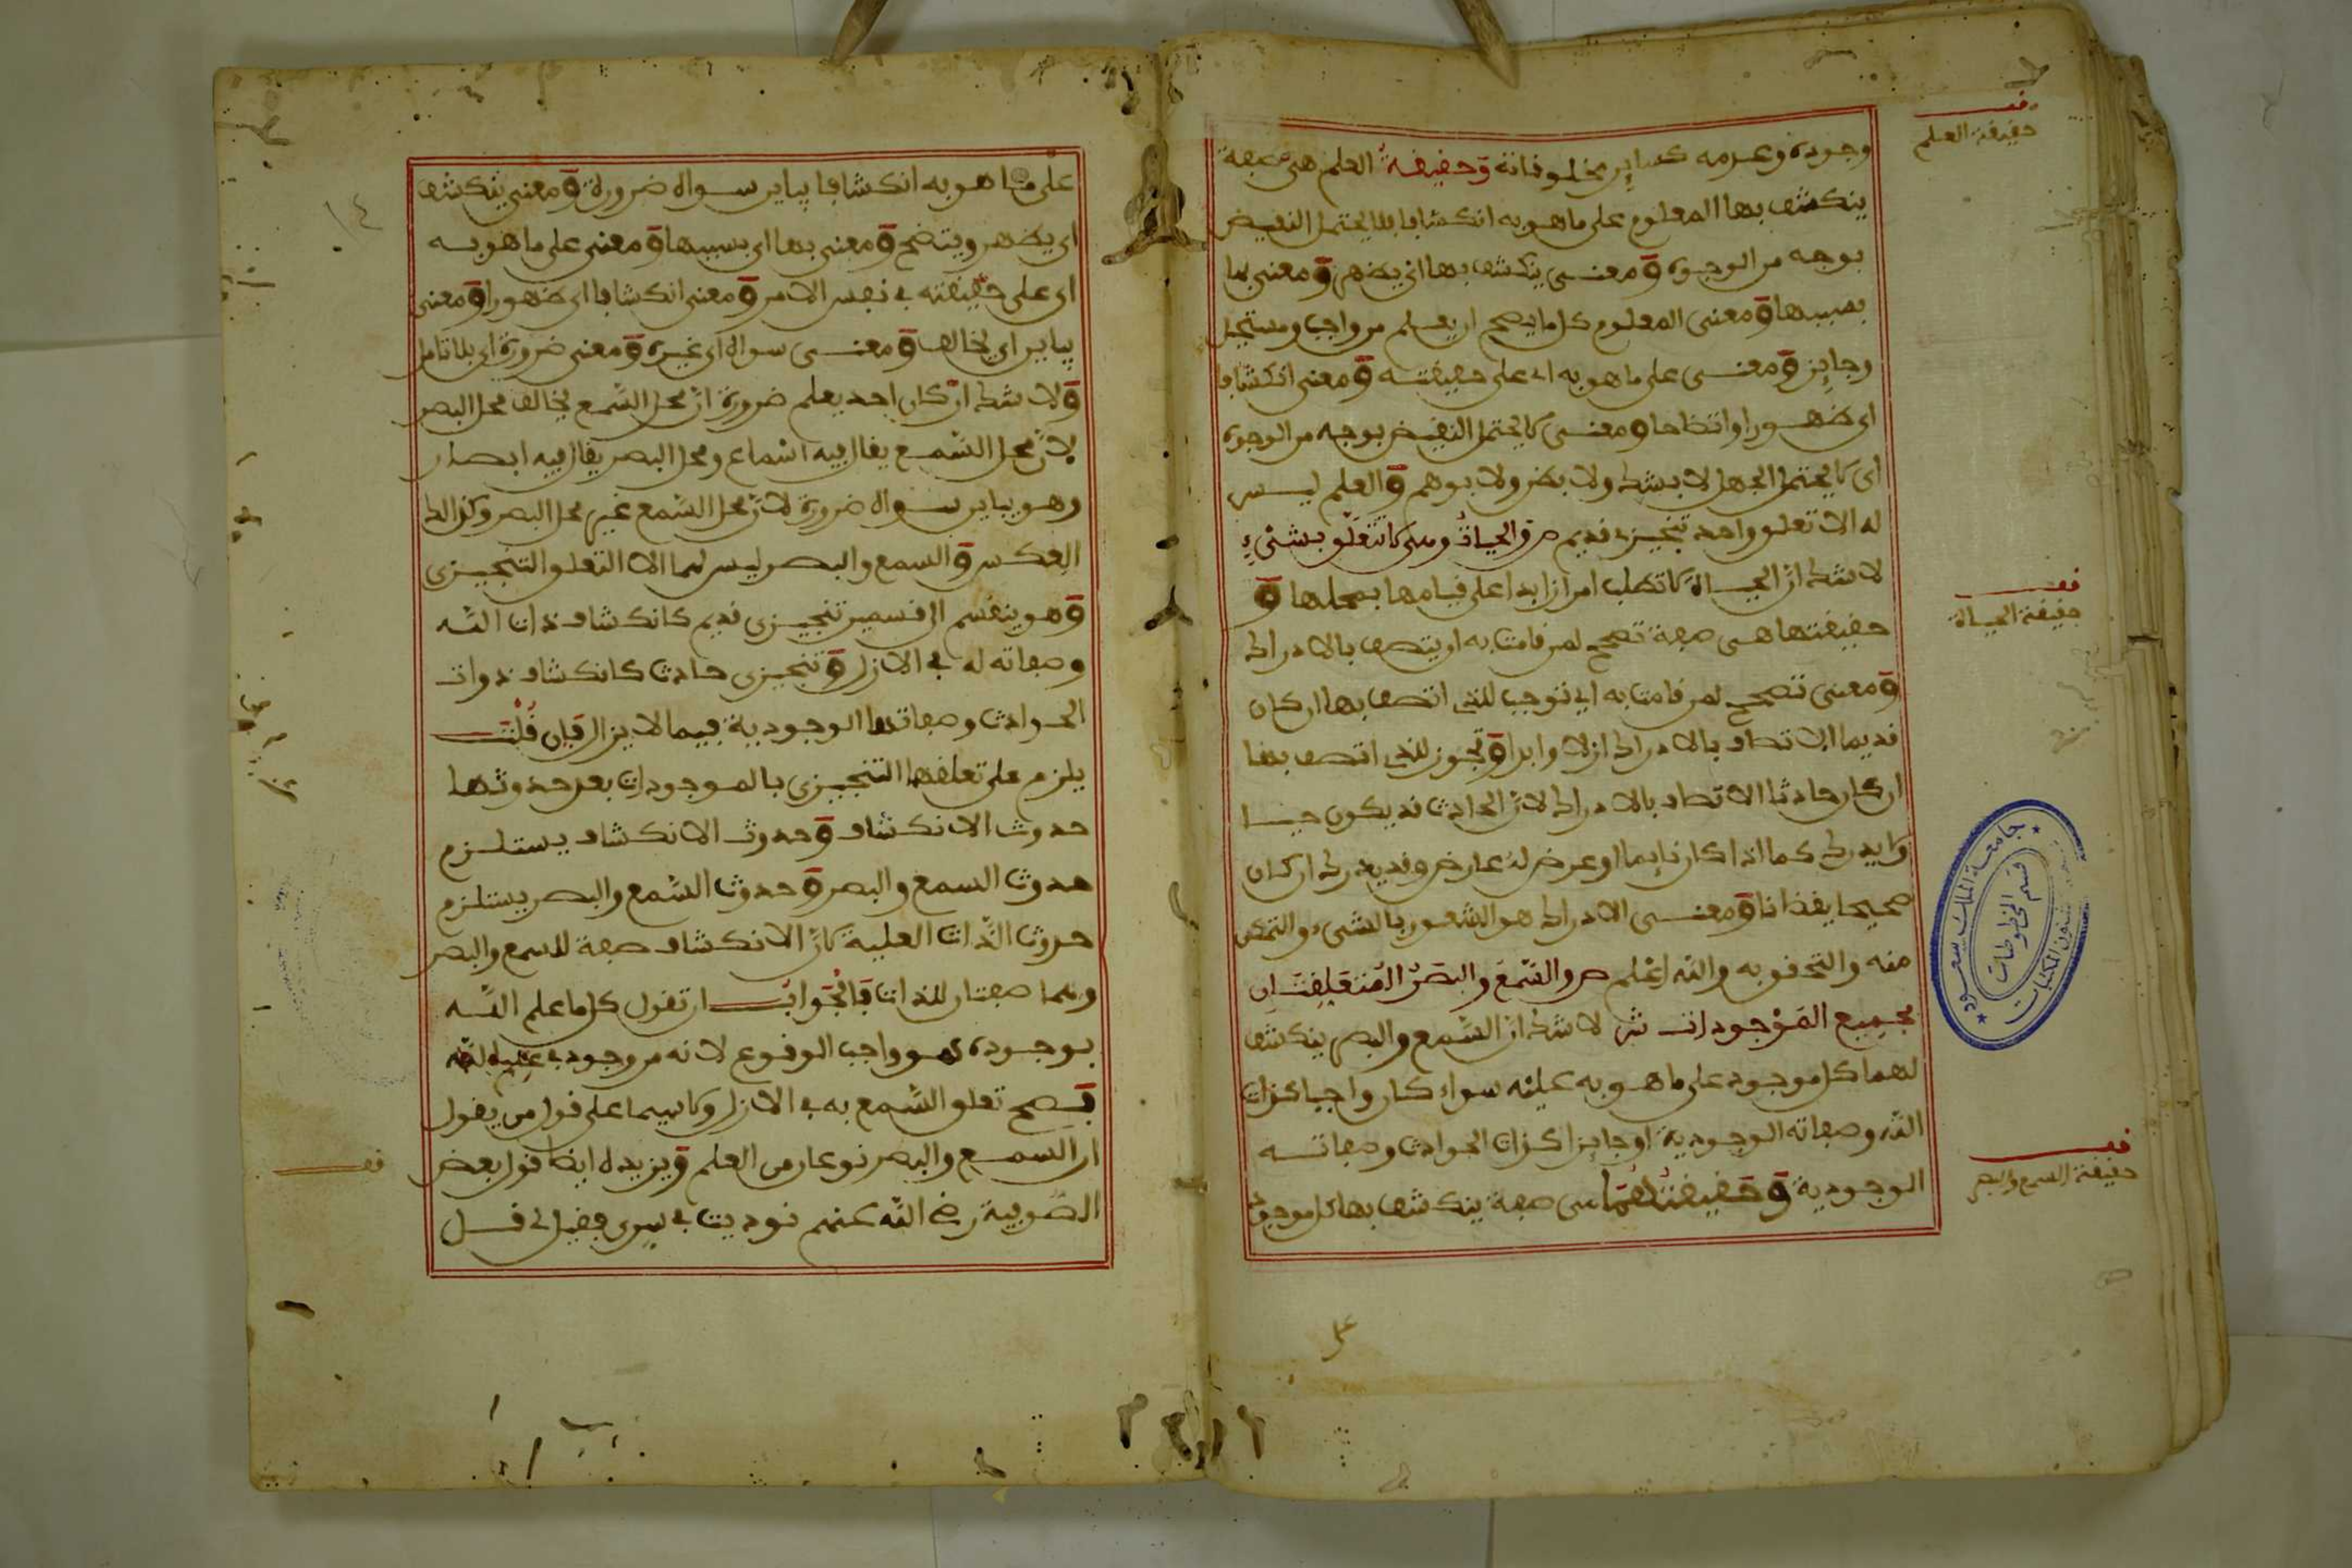 وجوده وعدمه كساير مخلوقاته وحقيقة العلم هي صفة
ينكشف بها المعلوم على ما هو به انكشافا لا يحتمل النقيض
بوجه من الوجوه ومعنى ينكشف بها اي يضهر ومعنى بها
بسببها ومعنى المعلوم كل ما يصح ان يعلم من واجب ومستحيل
وجايز ومعنى على ما هو به اي على حقيقته ومعنى انكشافا
اي ضهورا واتضاحا ومعنى لا يحتمل النقيض بوجه من الوجوه
اي لا يحتمل الجهل لا بشك ولا بظن ولا بوهم والعلم ليس
له الا تعلق واحد تنجيزي قديم ص والحياة وهي لا تتعلق بشيء
لا شك ان الحياة لا تطلب امرا زايدا على قيامها بمحلها و
حقيقتها هي صفة تصحح لمن قامت به ان يتصف بالادراك
ومعنى تصحح لمن قامت به اي توجب للذي اتصف بها ان كان
قديما الاتصاف بالادراك ازلا وابدا وتجوز للذي اتصف بها
ان كان حادثا الاتصاف بالادراك لان الحادث قد يكون حيا
ولا يدرك كما اذا كان نايما او عرض له عارض وقد يدرك ان كان
صحيحا يقضانا ومعنى الادراك هو الشعور بالشيء والتمكن
منه والتحقق به والله اعلم ص والسمع والبصر المتعلقان
بجميع الموجودات ش لا شك ان السمع والبصر ينكشف
لهما كل موجود على ما هو به عليه سواء كان واجبا كذات
الله وصفاته الوجودية او جايزا كذات الحوادث وصفاته
الوجودية وحقيقتهما هي صفة ينكشف بها كل موجود
على
قف
حقيقة العلم
قف
حقيقة الحياة
قف
حقيقة السمع والبصر
جامعة الملك سعود
شئون المكتبات
قسم المخطوطات
١٤
على ما هو به انكشافا يباين سواه ضرورة ومعنى ينكشف
اي يضهر ويتضح ومعنى بها اي بسببها ومعنى على ما هو به
اي على حقيقته في نفس الامر ومعنى انكشافا اي ضهورا ومعنى
يباين اي يخالف ومعنى سواه اي غيره ومعنى ضرورة اي بلا تامل
ولا شك ان كان احد يعلم ضرورة ان محل السمع يخالف محل البصر
لان محل السمع يقال فيه اسماع ومحل البصر يقال فيه ابصار
وهو يباين سواه ضرورة لان محل السمع غير محل البصر وكذالك
العكس والسمع والبصر ليس لهما الا التعلق التنجيزي
وهو ينقسم الى قسمين تنجيزي قديم كانكشاف ذات الله
وصفاته له في الازل وتنجيزي حادث كانكشاف ذوات
الحوادث وصفاتها الوجودية فيما لا يزال فان قلت
يلزم على تعلقهما التنجيزي بالموجودات بعد حدوثها
حدوث الانكشاف وحدوث الانكشاف يستلزم
حدوث السمع والبصر وحدوث السمع والبصر يستلزم
حدوث الذات العلية لان الانكشاف صفة للسمع والبصر
وهما صفتان للذات فالجواب ان تقول كل ما علم الله
بوجوده فهو واجب الوقوع لانه موجود في علم الله
فصح تعلق السمع به في الازل ولا سيما على قول من يقول
ان السمع والبصر نوعان من العلم ويزيده ايضا قول بعض
الصوفية رضي الله عنهم نوديت في سري فقيل لي قل
قف